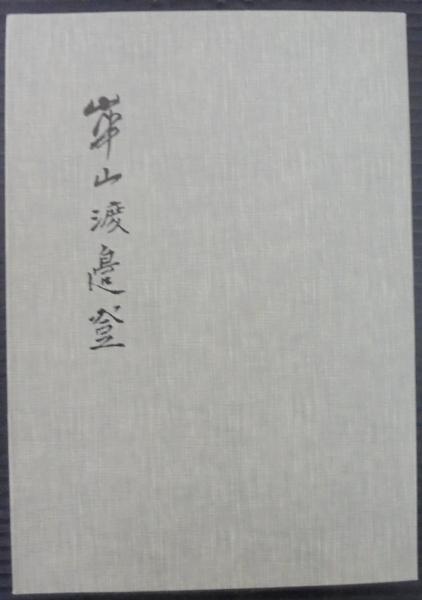 崋山渡邉登